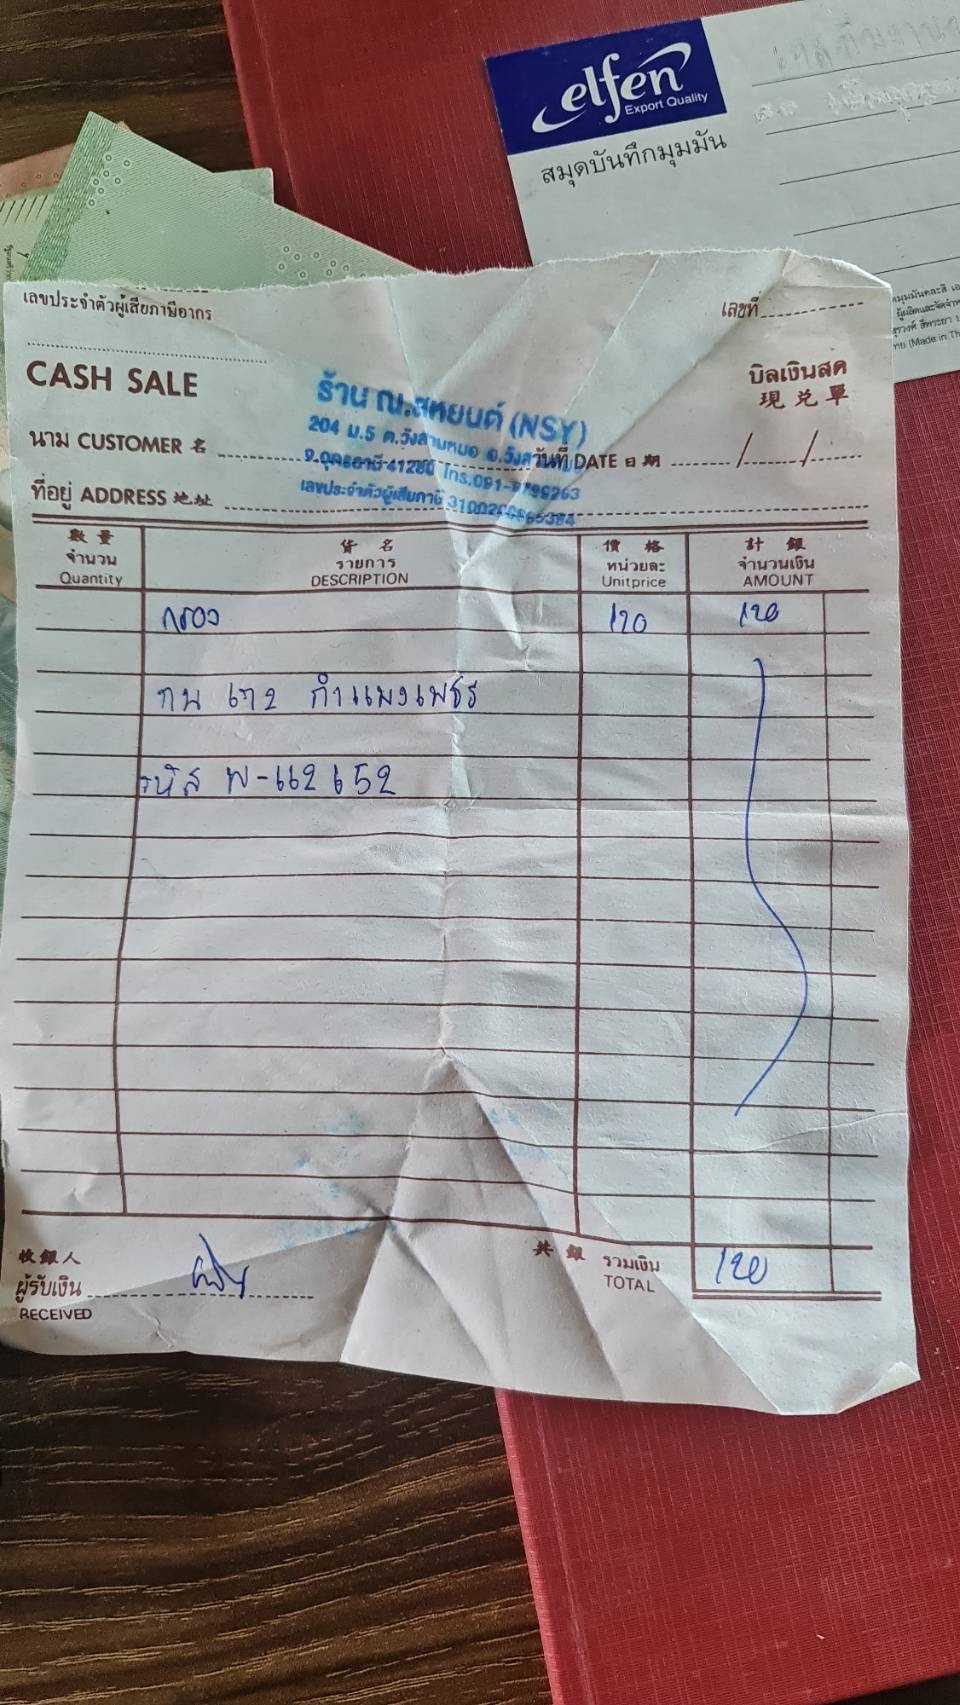 elfen
Export Quality
สมุดบันทึกมุมมัน
(Made in
เลขประจำตัวผู้เสียภาษีอากร
เลขที่
CASH SALE
บิลเงินสด
現兑單
ร้าน ณ.สหยนต์ (NSY)
204 ม.5 ต.วังสามหมอ อ.
จ.อุดรธานี 41280 โทร.091-
เลขประจำตัวผู้เสียภาษี
นาม CUSTOMER 名
วันที่ DATE 日期 / /
ที่อยู่ ADDRESS 地址
數量 貨名 價格 計銀
จำนวน รายการ หน่วยละ จำนวนเงิน
Quantity DESCRIPTION Unitprice AMOUNT
กรอง 120 120
กำแพงเพชร
รหัส
收銀人 共銀 รวมเงิน 120
ผู้รับเงิน TOTAL
RECEIVED